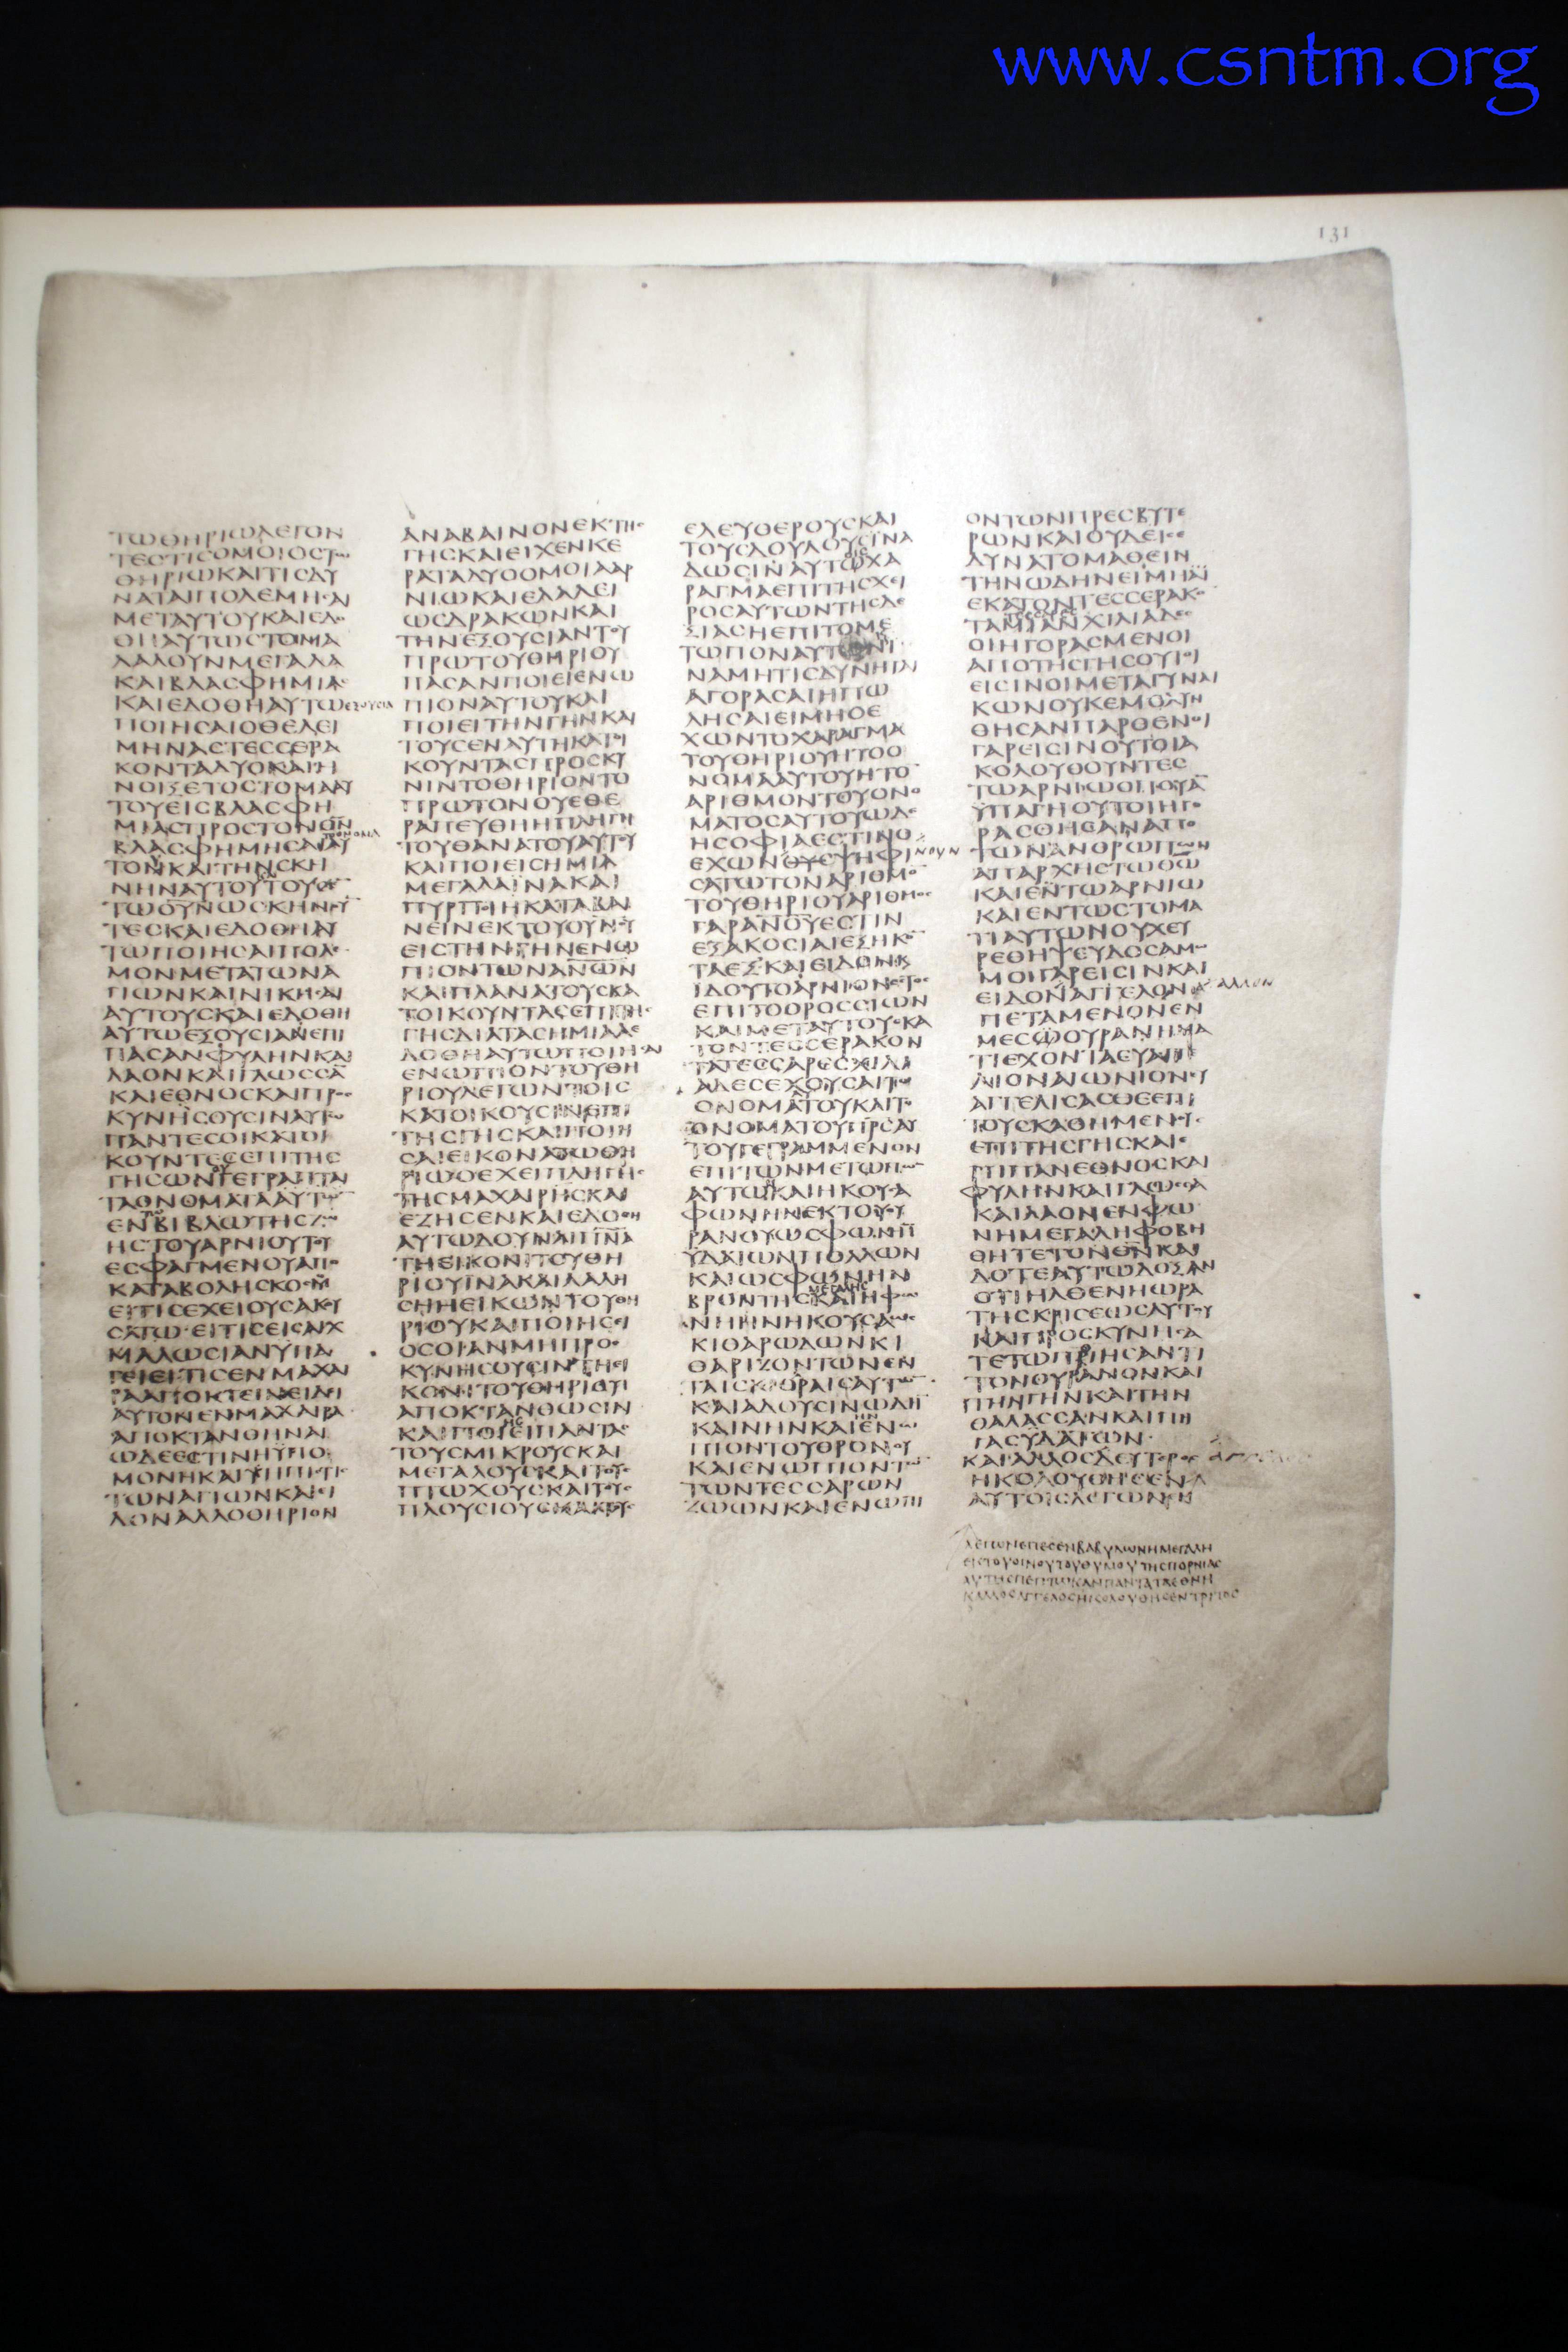 www.csntm.org
131
ΤΩΘΗΡΙΩΛΕΓΟΝ
ΤΕCΤΙCΟΜΟΙΟCΤΩ
ΘΗΡΙΩΚΑΙΤΙCΔΥ
ΝΑΤΑΙΠΟΛΕΜΗCΑΙ
ΜΕΤΑΥΤΟΥΚΑΙΕΔΟ
ΘΗΑΥΤΩCΤΟΜΑ
ΛΑΛΟΥΝΜΕΓΑΛΑ
ΚΑΙΒΛΑCΦΗΜΙΑC
ΚΑΙΕΔΟΘΗΑΥΤΩΕΞΟΥCΙΑ
ΠΟΙΗCΑΙΟΘΕΛΕΙ
ΜΗΝΑCΤΕCCΕΡΑ
ΚΟΝΤΑΔΥΟΚΑΙΗ
ΝΟΙΞΕΤΟCΤΟΜΑΑΥ
ΤΟΥΕΙCΒΛΑCΦΗ
ΜΙΑCΠΡΟCΤΟΝΘΝ
ΒΛΑCΦΗΜΗCΑΙΑΥ
ΤΟΝΚΑΙΤΗΝCΚΗ
ΝΗΝΑΥΤΟΥ
ΤΩΟΥΝΩCΚΗΝΟΥ
ΤΕCΚΑΙΕΔΟΘΗΑΥ
ΤΩΠΟΙΗCΑΙΠΟΛΕ
ΜΟΝΜΕΤΑΤΩΝΑ
ΓΙΩΝΚΑΙΝΙΚΗCΑΙ
ΑΥΤΟΥCΚΑΙΕΔΟΘΗ
ΑΥΤΩΕΞΟΥCΙΑΝΕΠΙ
ΠΑCΑΝΦΥΛΗΝΚΑΙ
ΛΑΟΝΚΑΙΓΛΩCCΑ
ΚΑΙΕΘΝΟCΚΑΙΠΡΟC
ΚΥΝΗCΟΥCΙΝΑΥΤΟ
ΠΑΝΤΕCΟΙΚΑΤΟΙ
ΚΟΥΝΤΕCΕΠΙΤΗC
ΓΗCΩΝΓΕΓΡΑΠΤΑΙ
ΤΑΟΝΟΜΑΤΑΑΥΤΩ
ΕΝΒΙΒΛΩΤΗCΖΩ
ΗCΤΟΥΑΡΝΙΟΥΤΟΥ
ΕCΦΑΓΜΕΝΟΥΑΠΟ
ΚΑΤΑΒΟΛΗCΚΟCΜΟΥ
ΕΙΤΙCΕΧΕΙΟΥCΑΚΟΥ
CΑΤΩ·ΕΙΤΙCΕΙCΑΙΧ
ΜΑΛΩCΙΑΝΥΠΑ
ΓΕΙΕΙΤΙCΕΝΜΑΧΑΙ
ΡΑΑΠΟΚΤΕΙΝΕΙΔΕΙ
ΑΥΤΟΝΕΝΜΑΧΑΙΡΑ
ΑΠΟΚΤΑΝΘΗΝΑΙ
ΩΔΕΕCΤΙΝΗΥΠΟ
ΜΟΝΗΚΑΙΗΠΙCΤΙC
ΤΩΝΑΓΙΩΝΚΑΙΕΙ
ΔΟΝΑΛΛΟΘΗΡΙΟΝ
ΑΝΑΒΑΙΝΟΝΕΚΤΗC
ΓΗCΚΑΙΕΙΧΕΝΚΕ
ΡΑΤΑΔΥΟΟΜΟΙΑΑΡ
ΝΙΩΚΑΙΕΛΑΛΕΙ
ΩCΔΡΑΚΩΝΚΑΙ
ΤΗΝΕΞΟΥCΙΑΝΤΟΥ
ΠΡΩΤΟΥΘΗΡΙΟΥ
ΠΑCΑΝΠΟΙΕΙΕΝΩ
ΠΙΟΝΑΥΤΟΥΚΑΙ
ΠΟΙΕΙΤΗΝΓΗΝΚΑΙ
ΤΟΥCΕΝΑΥΤΗΚΑΤΟΙ
ΚΟΥΝΤΑCΠΡΟCΚΥ
ΝΙΝΤΟΘΗΡΙΟΝΤΟ
ΠΡΩΤΟΝΟΥΕΘΕ
ΡΑΠΕΥΘΗΗΠΛΗΓΗ
ΤΟΥΘΑΝΑΤΟΥΑΥΤΟΥ
ΚΑΙΠΟΙΕΙCΗΜΙΑ
ΜΕΓΑΛΑΪΝΑΚΑΙ
ΠΥΡΠΟΙΗΚΑΤΑΒΑΙ
ΝΕΙΝΕΚΤΟΥΟΥΝΟΥ
ΕΙCΤΗΝΓΗΝΕΝΩ
ΠΙΟΝΤΩΝΑΝΩΝ
ΚΑΙΠΛΑΝΑΤΟΥCΚΑ
ΤΟΙΚΟΥΝΤΑCΕΠΙΤΗC
ΓΗCΔΙΑΤΑCΗΜΙΑΑΕ
ΔΟΘΗΑΥΤΩΠΟΙΗCΑΙ
ΕΝΩΠΙΟΝΤΟΥΘΗ
ΡΙΟΥΛΕΓΩΝΤΟΙC
ΚΑΤΟΙΚΟΥCΙΝΕΠΙ
ΤΗCΓΗCΚΑΙΠΟΙΗ
CΑΙΕΙΚΟΝΑΤΩΘΗ
ΡΙΩΟΕΧΕΙΠΛΗΓΗC
ΤΗCΜΑΧΑΙΡΗCΚΑΙ
ΕΖΗCΕΝΚΑΙΕΔΟΘΗ
ΑΥΤΩΔΟΥΝΑΙΠΝΑ
ΤΗΕΙΚΟΝΙΤΟΥΘΗ
ΡΙΟΥΪΝΑΚΑΙΛΑΛΗ
CΗΗΕΙΚΩΝΤΟΥΘΗ
ΡΙΟΥΚΑΙΠΟΙΗCΕΙ
ΟCΟΙΑΝΜΗΠΡΟC
ΚΥΝΗCΟΥCΙΝΤΗΕΙ
ΚΟΝΙΤΟΥΘΗΡΙΟΥ
ΑΠΟΚΤΑΝΘΩCΙΝ
ΚΑΙΠΟΙΕΙΠΑΝΤΑC
ΤΟΥCΜΙΚΡΟΥCΚΑΙ
ΜΕΓΑΛΟΥCΚΑΙΤΟΥC
ΠΤΩΧΟΥCΚΑΙΤΟΥC
ΠΛΟΥCΙΟΥC
ΕΛΕΥΘΕΡΟΥCΚΑΙ
ΤΟΥCΔΟΥΛΟΥCΙΝΑ
ΔΩCΙΝΑΥΤΩΧΑ
ΡΑΓΜΑΕΠΙΤΗCΧΕΙ
ΡΟCΑΥΤΩΝΤΗCΔΕ
ΞΙΑCΗΕΠΙΤΟΜΕ
ΤΩΠΟΝΑΥΤΩΝΙ
ΝΑΜΗΤΙCΔΥΝΗΤΑΙ
ΑΓΟΡΑCΑΙΗΠΩ
ΛΗCΑΙΕΙΜΗΟΕ
ΧΩΝΤΟΧΑΡΑΓΜΑ
ΤΟΥΘΗΡΙΟΥΗΤΟΟ
ΝΟΜΑΑΥΤΟΥΗΤΟ
ΑΡΙΘΜΟΝΤΟΥΟΝΟ
ΜΑΤΟCΑΥΤΟΥΩΔΕ
ΗCΟΦΙΑΕCΤΙΝΟ
ΕΧΩΝΟΥCΨΗΦΙ ΝΟΥΝ
CΑΤΩΤΟΝΑΡΙΘΜΟ
ΤΟΥΘΗΡΙΟΥΑΡΙΘΜΟC
ΓΑΡΑΝΟΥΕCΤΙΝ
ΕΞΑΚΟCΙΑΙΕΞΗΚΟ
ΤΑΕΞΚΑΙΕΙΔΟΝΚΑΙ
ΙΔΟΥΤΟΑΡΝΙΟΝΕCΤΟC
ΕΠΙΤΟΟΡΟCCΙΩΝ
ΚΑΙΜΕΤΑΥΤΟΥΕΚΑ
ΤΟΝΤΕCCΕΡΑΚΟΝ
ΤΑΤΕCCΑΡΕCΧΙΛΙ
ΑΔΕCΕΧΟΥCΑΙΤΟ
ΟΝΟΜΑΑΥΤΟΥΚΑΙΤΟ
ΟΝΟΜΑΤΟΥΠΡCΑΥ
ΤΟΥΓΕΓΡΑΜΜΕΝΟΝ
ΕΠΙΤΩΝΜΕΤΩΠΩ
ΑΥΤΩΚΑΙΗΚΟΥCΑ
ΦΩΝΗΝΕΚΤΟΥΟΥ
ΡΑΝΟΥΩCΦΩΝΗ
ΥΔΑΤΩΝΠΟΛΛΩΝ
ΚΑΙΩCΦΩΝΗΝ
ΒΡΟΝΤΗCΚΑΙΗΦΩ ΜΕΓΑΛΗC
ΝΗΗΝΗΚΟΥCΑΩC
ΚΙΘΑΡΩΔΩΝΚΙ
ΘΑΡΙΖΟΝΤΩΝΕΝ
ΤΑΙCΚΙΘΑΡΑΙCΑΥΤΩ
ΚΑΙΑΔΟΥCΙΝΩΔΗ
ΚΑΙΝΗΝΚΑΙΕΝΩ
ΠΙΟΝΤΟΥΘΡΟΝΟΥ
ΚΑΙΕΝΩΠΙΟΝΤΩ
ΤΩΝΤΕCCΑΡΩΝ
ΖΩΩΝΚΑΙΕΝΩΠΙ
ΟΝΤΩΝΠΡΕCΒΥΤΕ
ΡΩΝΚΑΙΟΥΔΕΙC
ΔΥΝΑΤΟΜΑΘΕΙΝ
ΤΗΝΩΔΗΝΕΙΜΗΑΙ
ΕΚΑΤΟΝΤΕCCΕΡΑΚΟ
ΤΑΜΙΑΝΧΙΛΙΑΔΕC
ΟΙΗΓΟΡΑCΜΕΝΟΙ
ΑΠΟΤΗCΓΗCΟΥΤΟΙ
ΕΙCΙΝΟΙΜΕΤΑΓΥΝΑΙ
ΚΩΝΟΥΚΕΜΟΛΥΝ
ΘΗCΑΝΠΑΡΘΕΝΟΙ
ΓΑΡΕΙCΙΝΟΥΤΟΙΑ
ΚΟΛΟΥΘΟΥΝΤΕC
ΤΩΑΡΝΙΩΟΠΟΥΑ
ΥΠΑΓΗΟΥΤΟΙΗΓΟ
ΡΑCΘΗCΑΝΑΠΟ
ΤΩΝΑΝΘΡΩΠΩΝ
ΑΠΑΡΧΗCΤΩΘΩ
ΚΑΙΕΝΤΩΑΡΝΙΩ
ΚΑΙΕΝΤΩCΤΟΜΑ
ΤΙΑΥΤΩΝΟΥΧΕΥ
ΡΕΘΗΨΕΥΔΟCΑΜΩ
ΜΟΙΓΑΡΕΙCΙΝΚΑΙ
ΕΙΔΟΝΑΓΓΕΛΟΝ ΑΛΛΟΝ
ΠΕΤΑΜΕΝΟΝΕΝ
ΜΕCΩΟΥΡΑΝΗΜΑ
ΤΙΕΧΟΝΤΑΕΥΑΓΓΕ
ΛΙΟΝΑΙΩΝΙΟΝΕΥ
ΑΓΓΕΛΙCΑCΘΕΕΠΙ
ΤΟΥCΚΑΘΗΜΕΝΟΥC
ΕΠΙΤΗCΓΗCΚΑΙΕ
ΠΙΠΑΝΕΘΝΟCΚΑΙ
ΦΥΛΗΝΚΑΙΓΛΩCCΑ
ΚΑΙΛΑΟΝΕΝΦΩ
ΝΗΜΕΓΑΛΗΦΟΒΗ
ΘΗΤΕΤΟΝΘΝΚΑΙ
ΔΟΤΕΑΥΤΩΔΟΞΑΝ
ΟΤΙΗΛΘΕΝΗΩΡΑ
ΤΗCΚΡΙCΕΩCΑΥΤΟΥ
ΚΑΙΠΡΟCΚΥΝΗCΑ
ΤΕΤΩΠΟΙΗCΑΝΤΙ
ΤΟΝΟΥΡΑΝΟΝΚΑΙ
ΤΗΝΓΗΝΚΑΙΤΗΝ
ΘΑΛΑCCΑΝΚΑΙΠΗ
ΓΑCΥΔΑΤΩΝ·
ΚΑΙΑΛΛΟCΔΕΥΤΕΡΟC
ΗΚΟΛΟΥΘΗCΕΝ
ΑΥΤΟΙCΛΕΓΩΝ
ΛΕΓΩΝΕΠΕCΕΝΒΑΒΥΛΩΝΗΜΕΓΑΛΗ
ΕΚΤΟΥΟΙΝΟΥΤΟΥΘΥΜΟΥΤΗCΠΟΡΝΙΑC
ΑΥΤΗCΠΕΠΤΩΚΑΝΠΑΝΤΑΤΑΕΘΝΗ
ΚΑΛΛΟCΑΓΓΕΛΟCΗΚΟΛΟΥΘΗCΕΝΤΡΙΤΟC